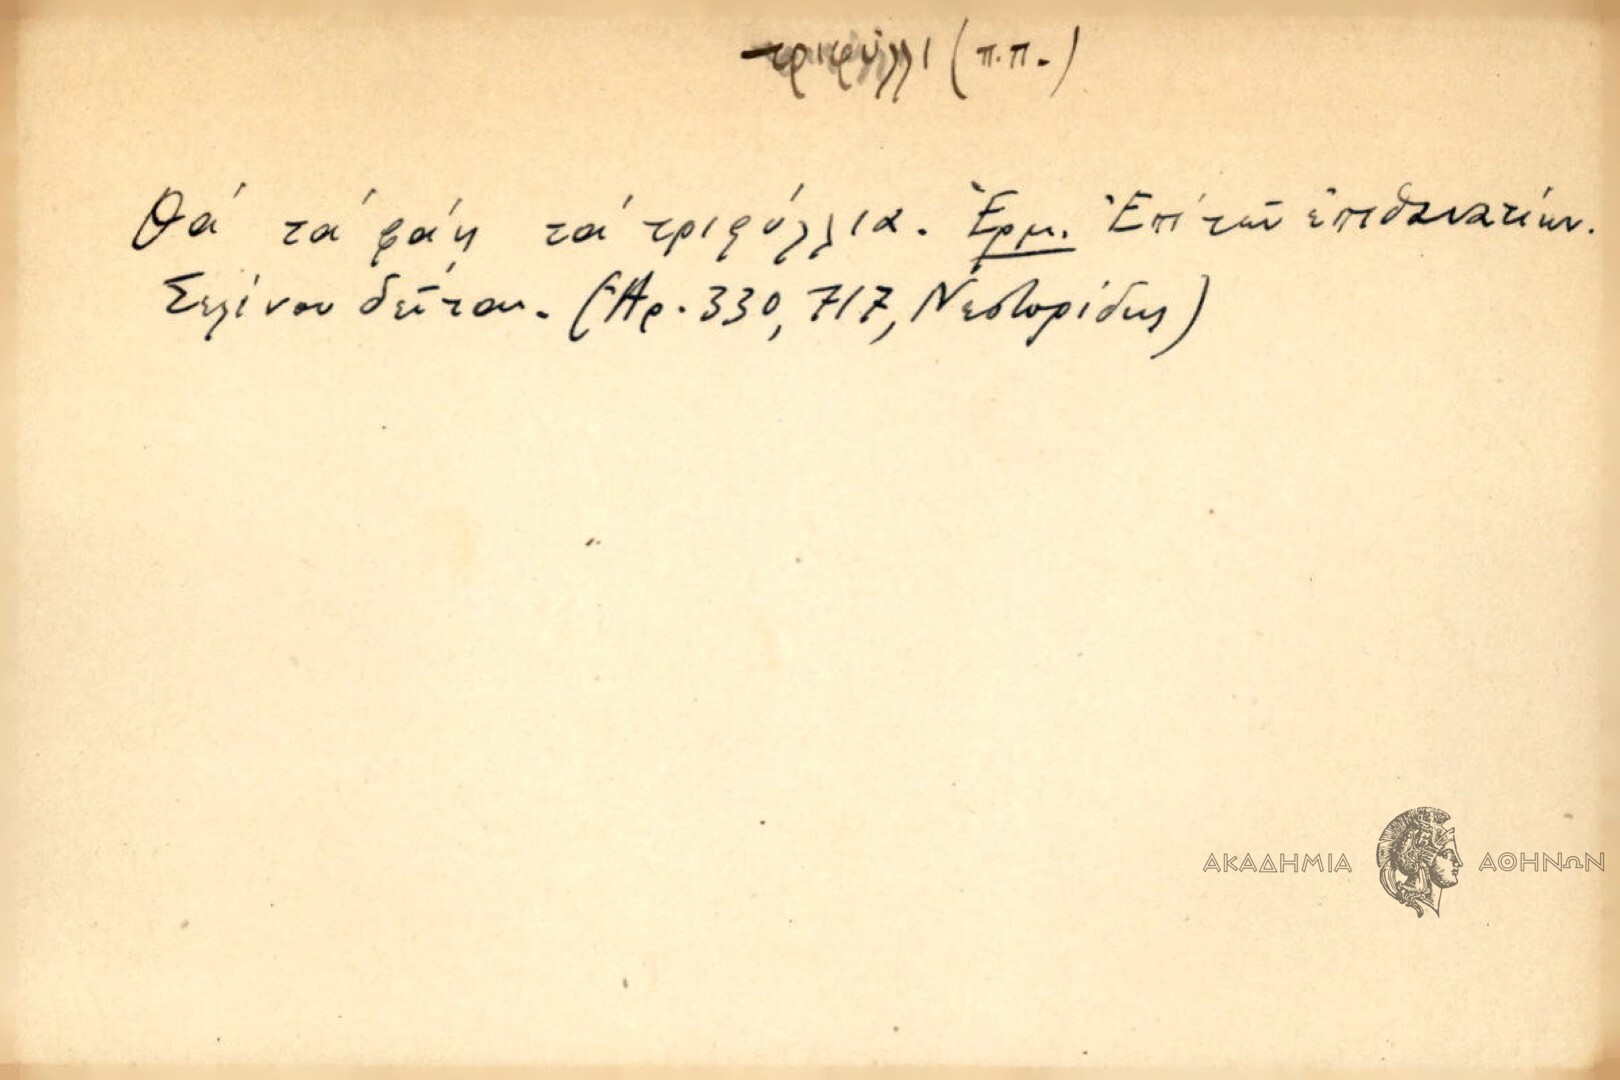 τριφύλλι (π.π.)
Θά τά φάῃ τά τριφύλλια. Ἑρμ. Ἐπί τῶν ἐπιθανατίων.
Σελίνου δεῖται. (Ἀρ. 330, 717, Νεστορίδης)
ΑΚΑΔΗΜΙΑ ΑΘΗΝΩΝ